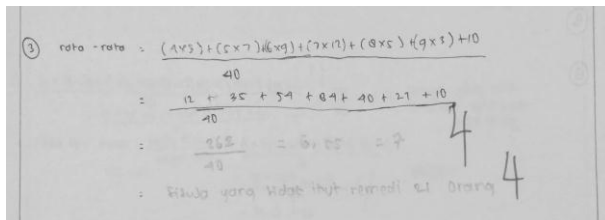 ③ rata-rata = (4x3)+(5x7)+(6x9)+(7x12)+(8x5)+(9x3)+10
40
= 12 + 35 + 54 + 84 + 40 + 27 + 10
40
4
= 262 = 6,55 = 7
40
= siswa yang tidak ikut remedi 21 orang 4